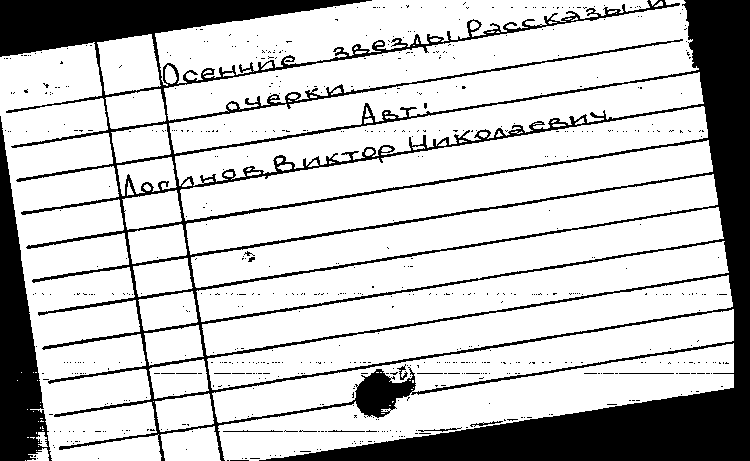 Осенние звезды. Рассказы и
очерки.
Авт:
Логинов, Виктор Николаевич.